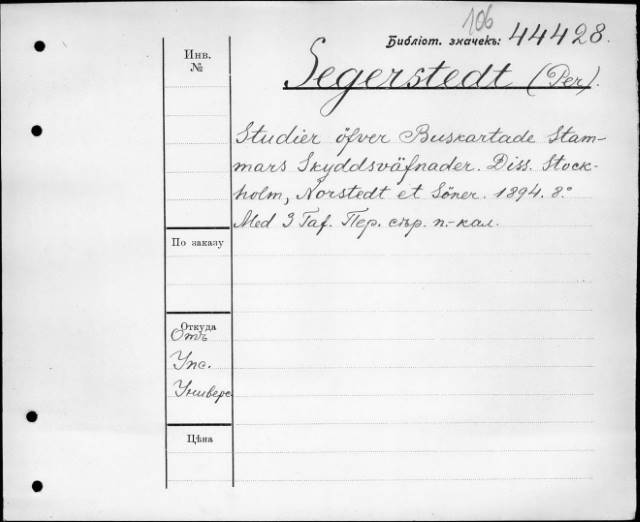 106
Библіот. значекъ: 44428.
Инв.
№
Segerstedt (Per).
Studier öfver Buskartade Stam-
mars Skyddsväfnader. Diss. Stock-
holm, Norstedt et Söner. 1894. 8.°
Med 3 Taf. Пер. сѣр. п.-кал.
По заказу
Откуда
Отъ
Упс.
Универс.
Цѣна